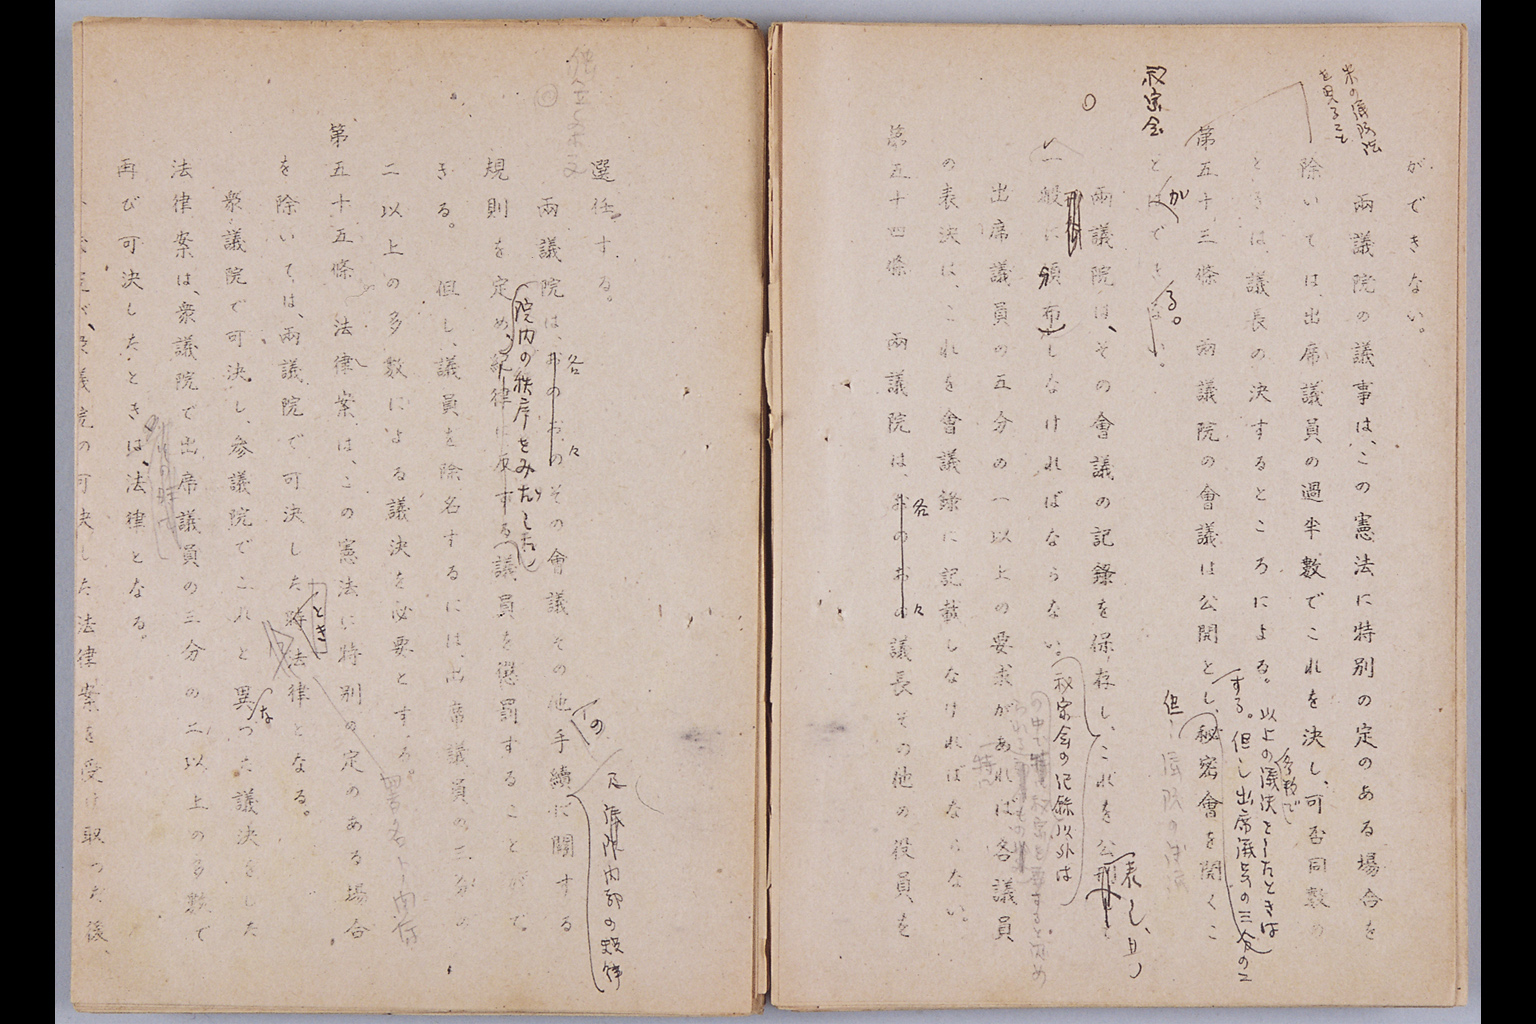 米の議院法
を見ること
秘密会
がができない。
兩議院の議事は、この憲法に特別の定のある場合を
除いては、出席議員の過半數でこれを決し、可否同數の
ときは、議長の決するところによる。
以上の議決をしたときは
多数で
第五十三條 兩議院の會議は公開とし、秘密會を開くこ
する。但し出席議員の三分の二
とはできない。
が
る。
但し
兩議院は、その會議の記錄を保存し、これを公
表し、且つ
一般に頒布しなければならない。
秘密会の記録以外は
出席議員の五分の一以上の要求があれば、各議員
の表決は、これを會議錄に記載しなければならない。
第五十四條 兩議院は、おのおの議長その他の役員を
各々
選任する。
兩議院は、おのおのその會議その他手續に關する
各々
の
及議院内部の規律
規則を定め、紀律に反する議員を懲罰することがで
院内の秩序をみだした
きる。但し、議員を除名するには、出席議員の三分の
二以上の多數による議決を必要とする。
第五十五條 法律案は、この憲法に特別の定のある場合
を除いては、兩議院で可決した時法律となる。
とき
衆議院で可決し、參議院でこれと異つた議決をした
な
法律案は、衆議院で出席議員の三分の二以上の多數で
再び可決したときは、法律となる。
議院の可決した法律案を受け取つた後、